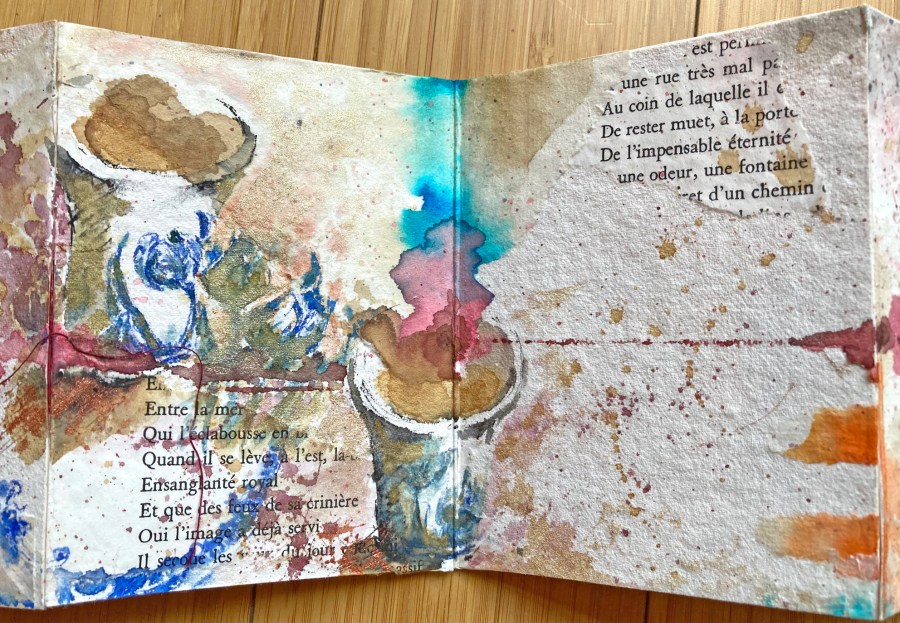 Entre la mer
Qui l'éclabousse en
Quand il se lève, à l'est, la
Ensanglanté royal
Et que des feux de sa crinière
Oui l'image a déjà servi
Il secoue les du jour
est
une rue très mal
Au coin de laquelle il
De rester muet, à la porte
De l'impensable éternité
une odeur, une fontaine
d'un chemin